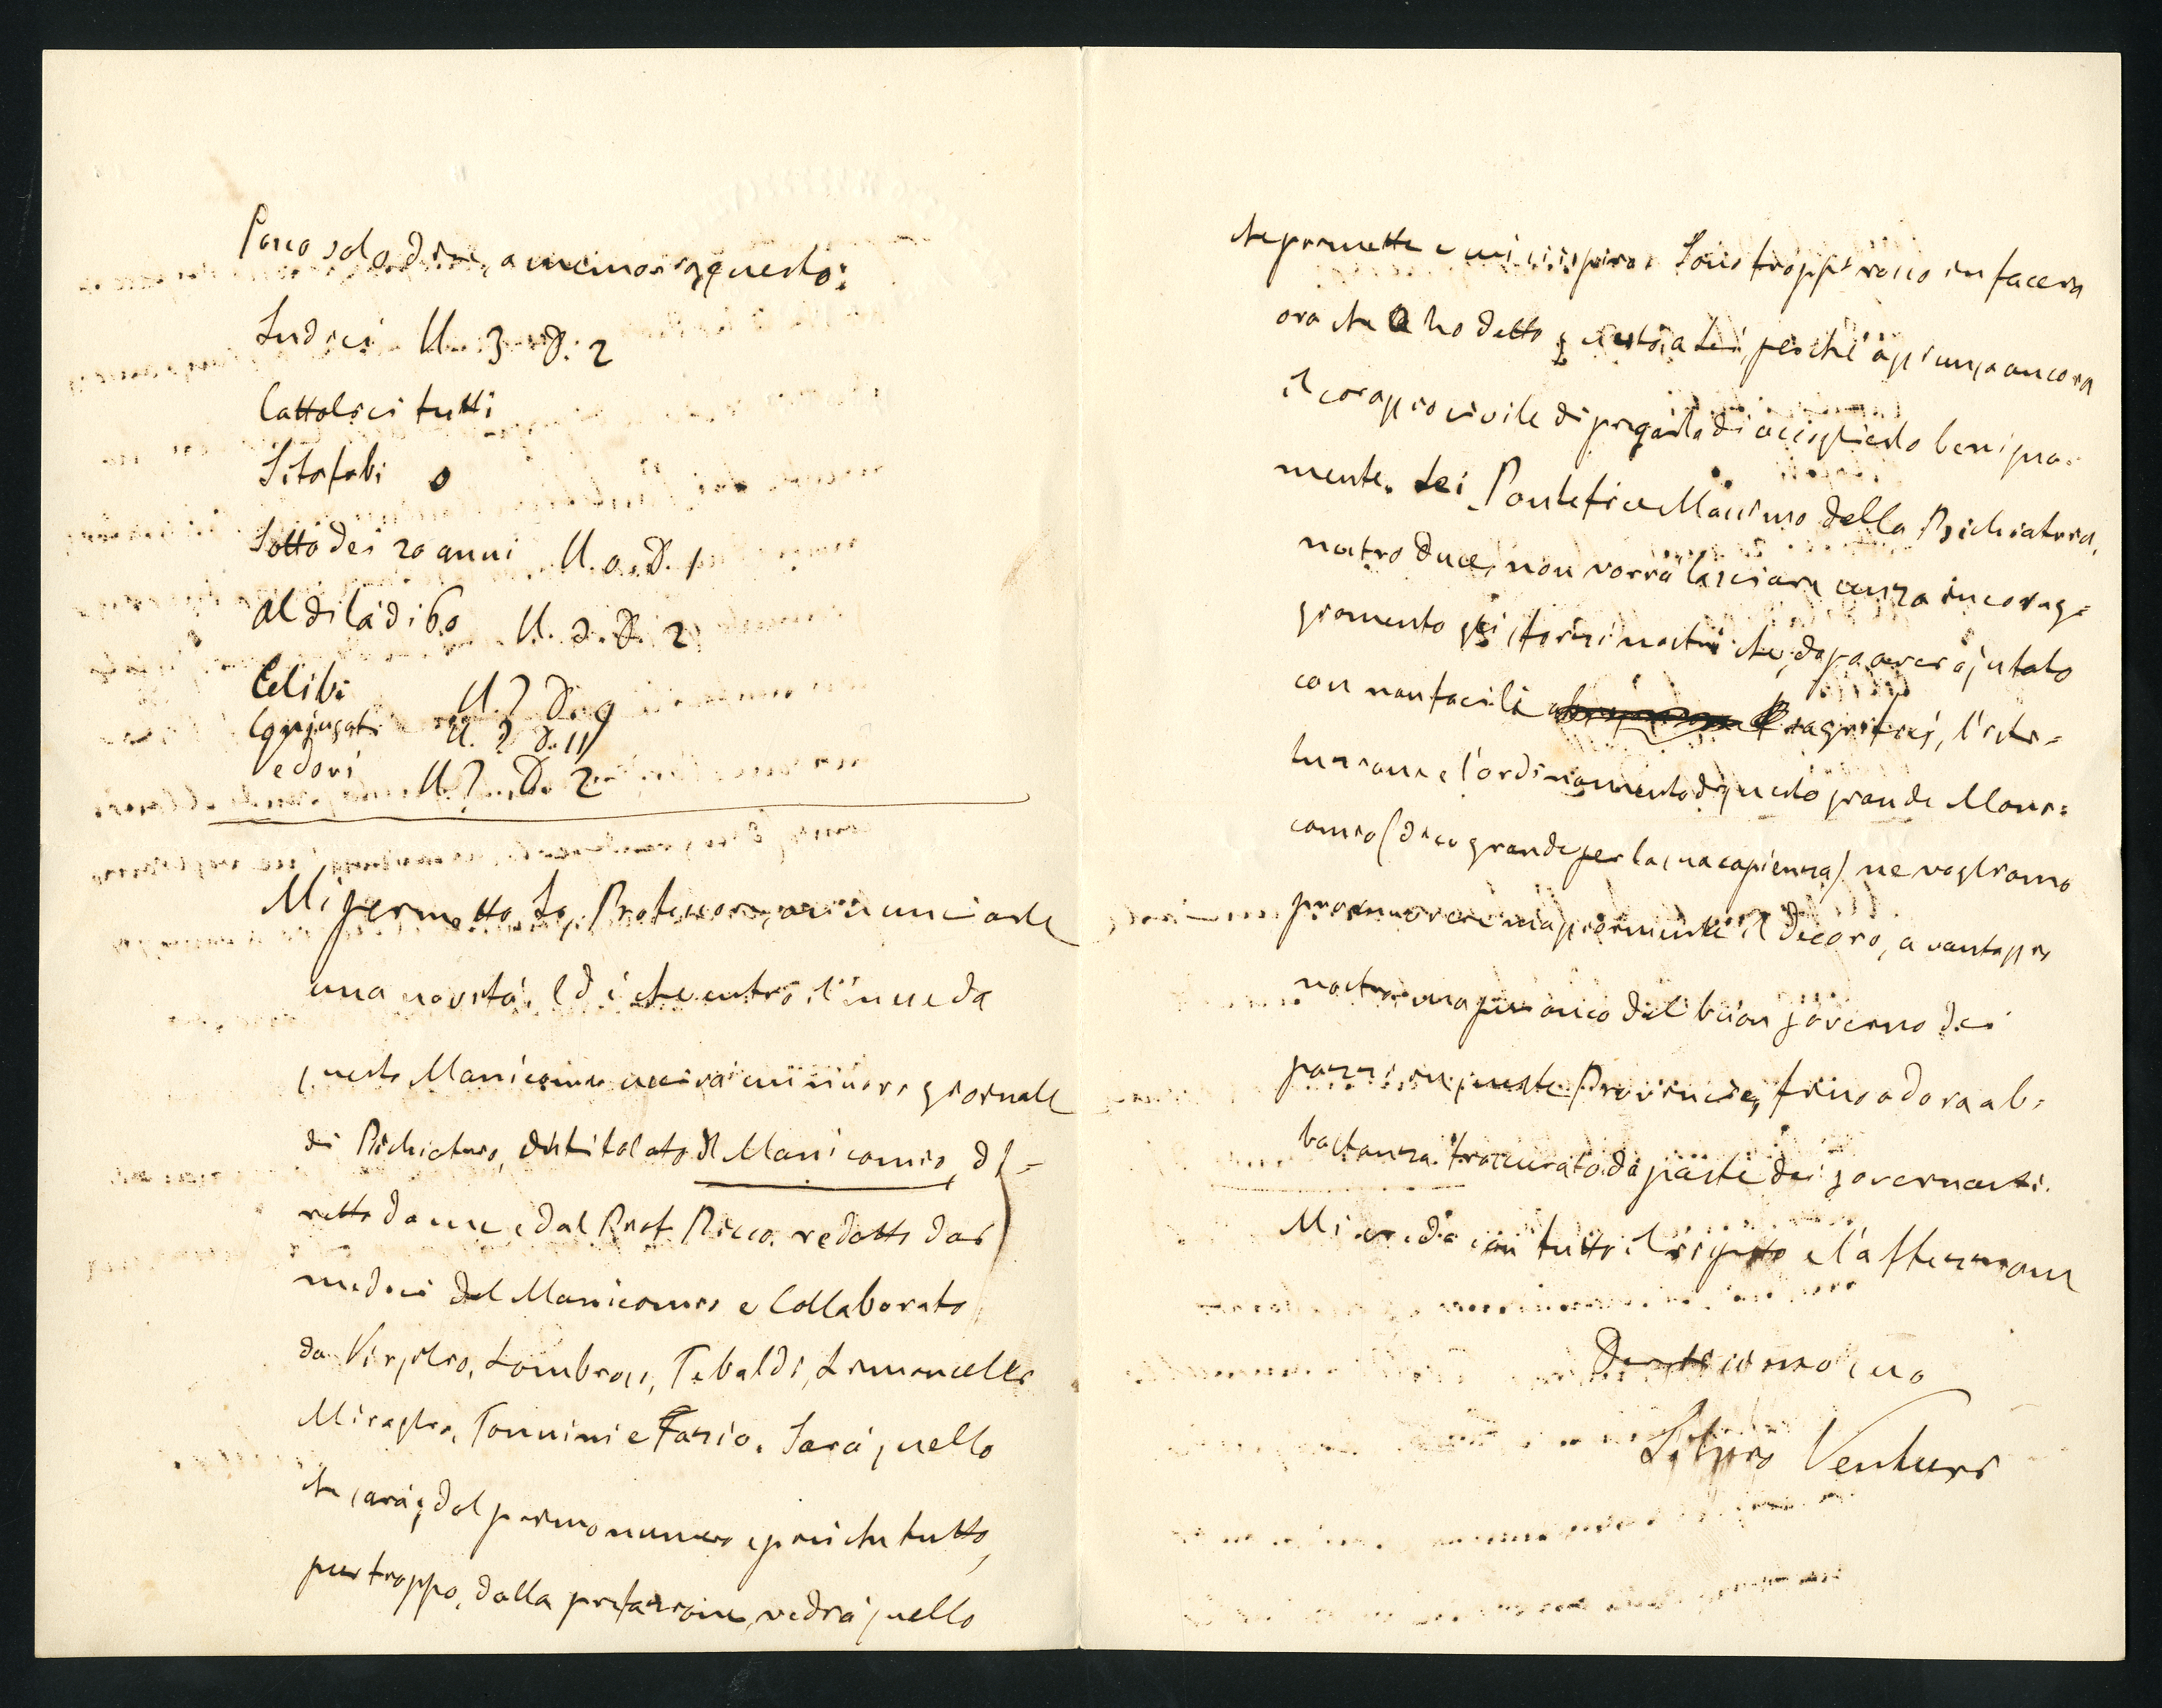 Posso solo dire, a memoria, questo:
Sudici U. 3 D. 2
Cattolici tutti
Sitofobi 0
Sotto dei 20 anni U. 0. D. 1
Al di là di 60 U. 2. D. 2
Celibi U. ? D. 9
Conjugati U. ? D. 11
Vedovi U. ? D. 2
Mi permetto, Sig. Professore, annunciarle
una novità. Ed è che entro il mese da
questo Manicomio uscirà un nuovo giornale
di Psichiatria, intitolato Il Manicomio, di-
retto da me e dal Prof. Ricco. redatto dai
medici del Manicomio e Collaborato
da Virgilio, Lombroso, Tebaldi, Limoncelli
Miraglia, Tonnini e Fazio. Sarà quello
che sarà; dal primo numero e più che tutto,
pur troppo, dalla prefazione, vedrà quello
che promette e mi inspira. Sono troppo rosso in faccia
ora che ho detto questo a Lei, perchè aggiunga ancora
il coraggio civile di pregarla di accoglierlo benigna-
mente. Lei Pontefice Massimo della Psichiatria,
nostro duce, non vorrà lasciare senza incorag-
giamento gli sforzi nostri che, dopo aver ajutato
con non facili sagrifici, l'isti-
tuzione e l'ordinamento di questo grande Mani-
comio (dico grande per la sua capienza) ne vogliamo
promuovere maggiormente il decoro, a vantaggio
nostro ma pur anco del buon governo dei
pazzi in queste Provincie, fino ad ora ab-
bastanza trascurato da parte dei governanti.
Mi creda con tutto il rispetto e l'affezione
Devotissimo suo
Silvio Venturi